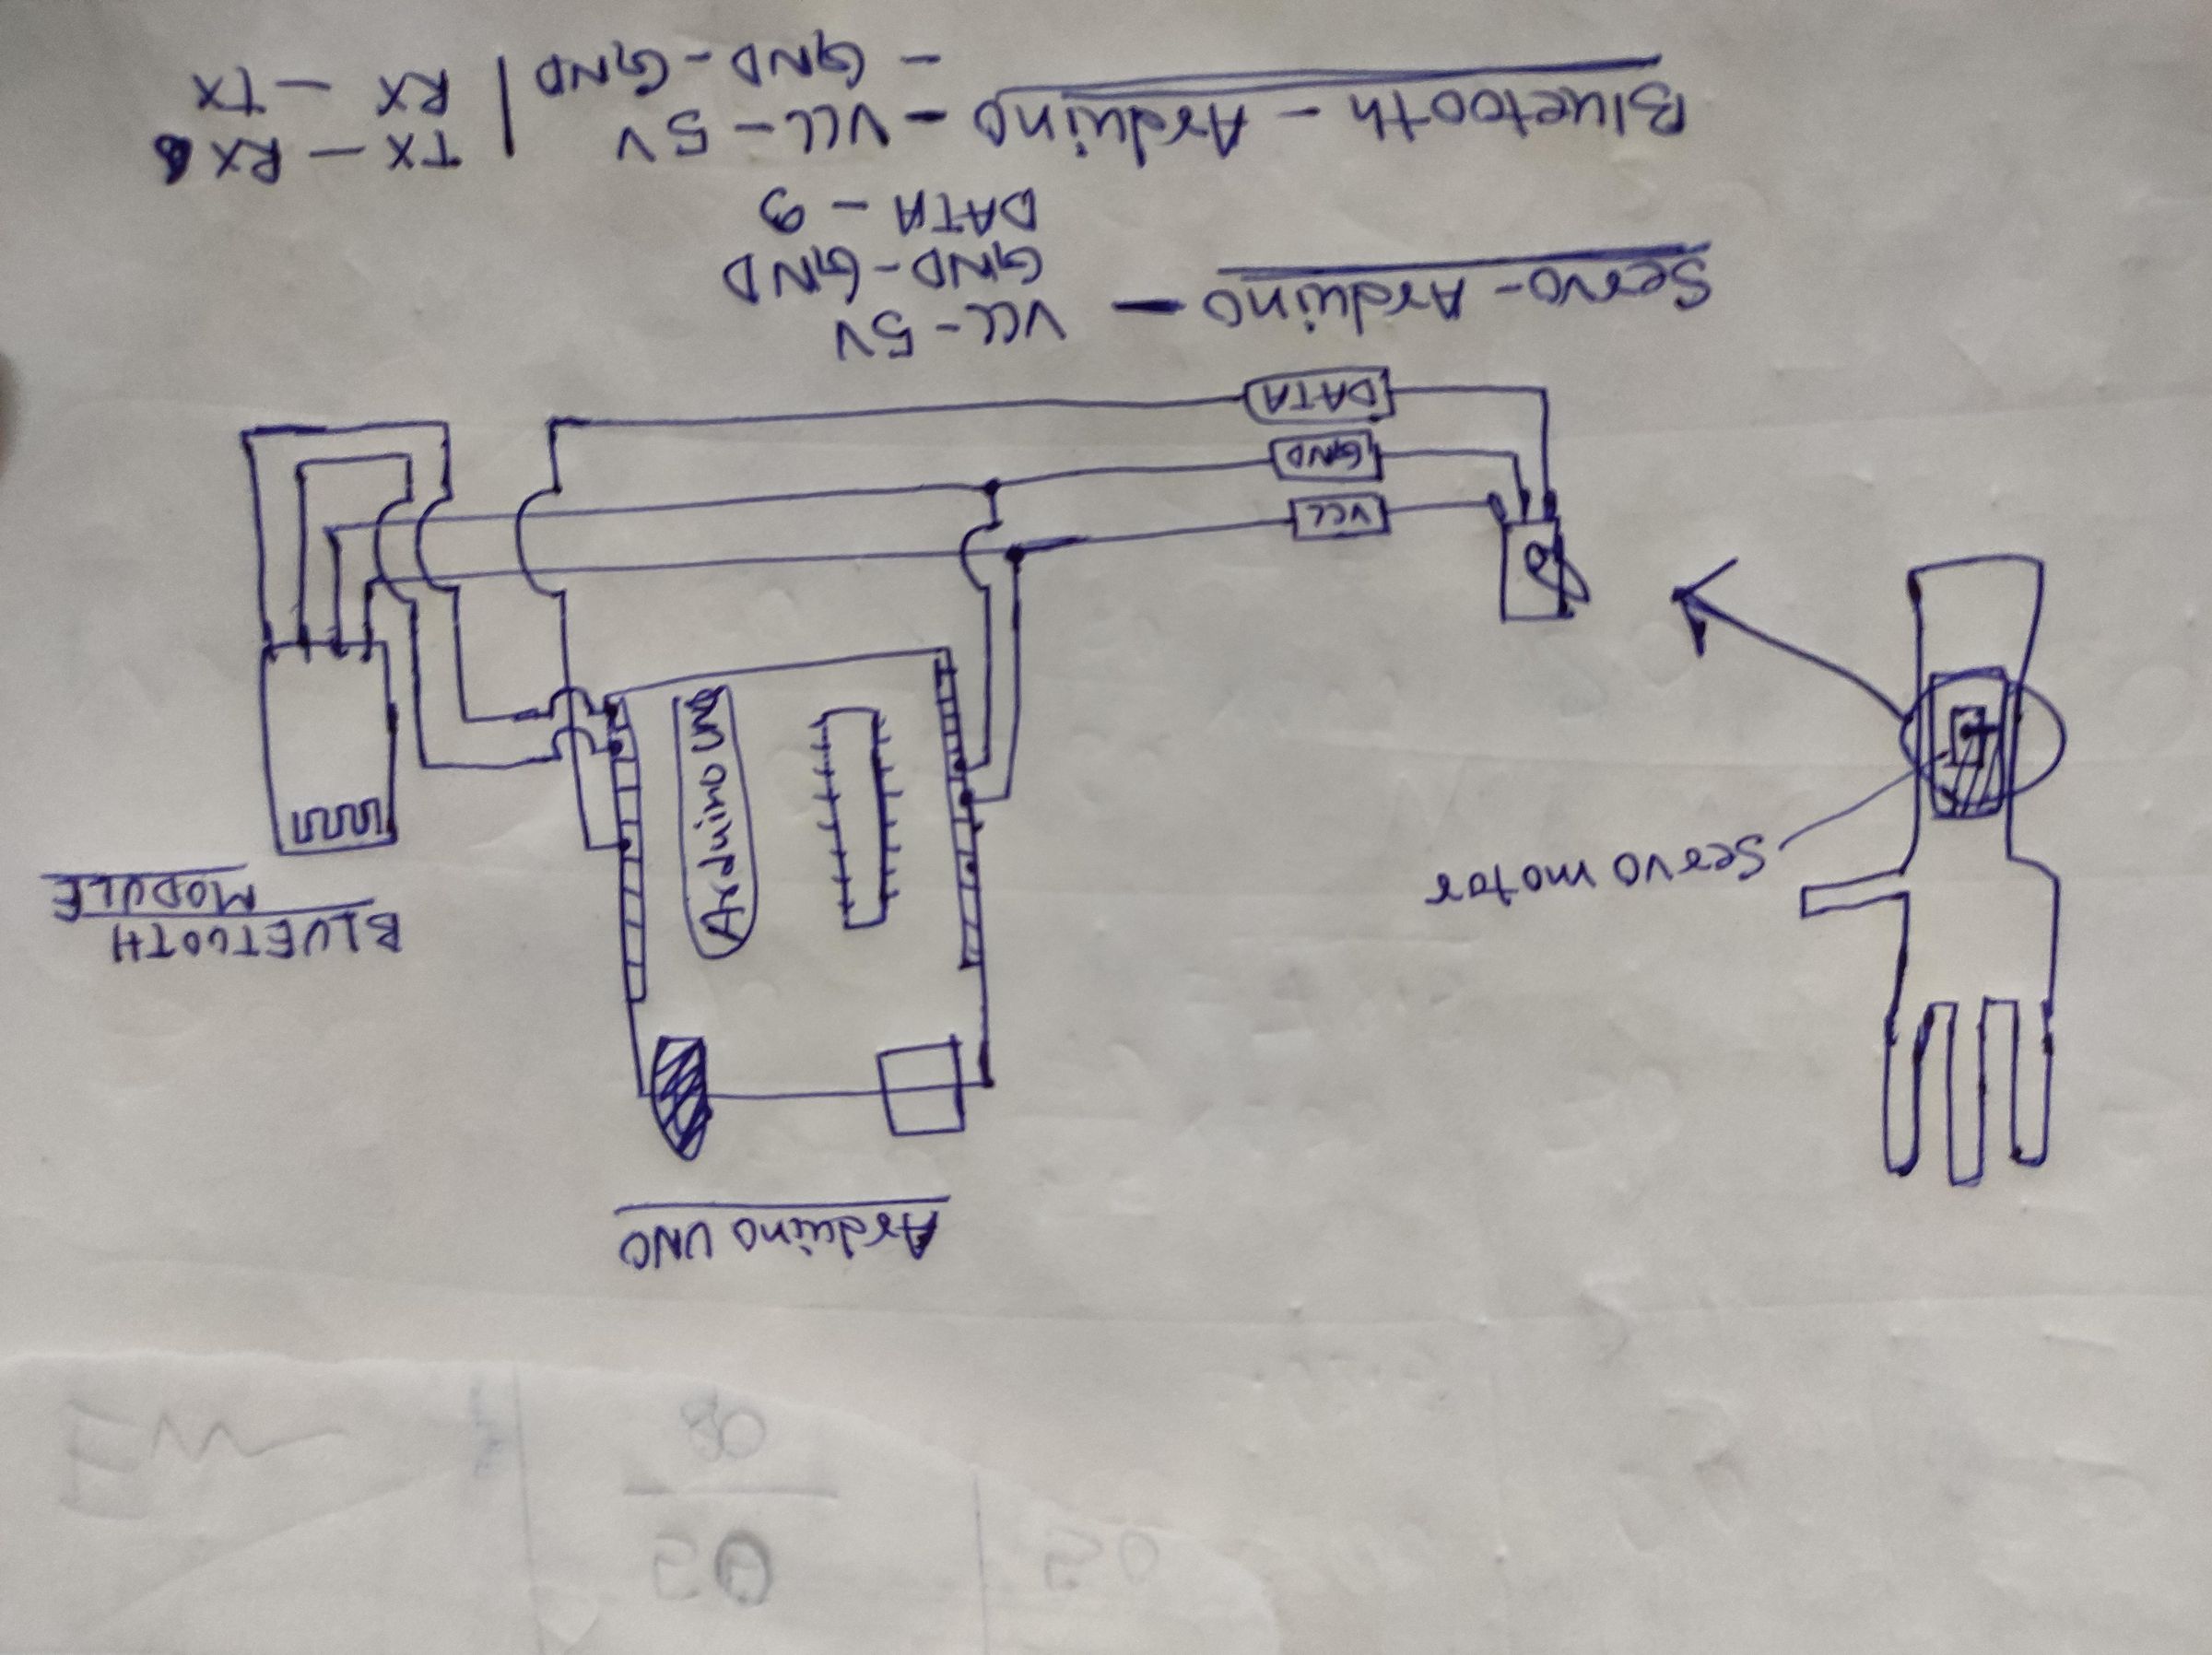 Arduino UNO
BLUETOOTH
MODULE
Servo motor
Arduino UN
VCC
GND
DATA
Servo-Arduino — VCC-5V
GND-GND
DATA - 3
Bluetooth - Arduino - VCC - 5V | TX - RX
- GND - GND | RX - TX